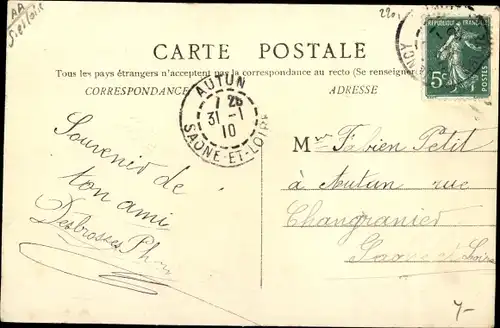 AA
S. et Loire
220
CARTE POSTALE
Tous les pays étrangers n'acceptent pas la correspondance au recto (Se renseigner
CORRESPONDANCE
ADRESSE
RÉPUBLIQUE FRANÇAISE
5c
POSTES
AUTUN
31-1
10
SAONE-ET-LOIRE
Souvenir de
ton ami
Desbrosses Ph
Mr Fabien Petit
à Autun rue
Changranier
Saone et Loire
7-